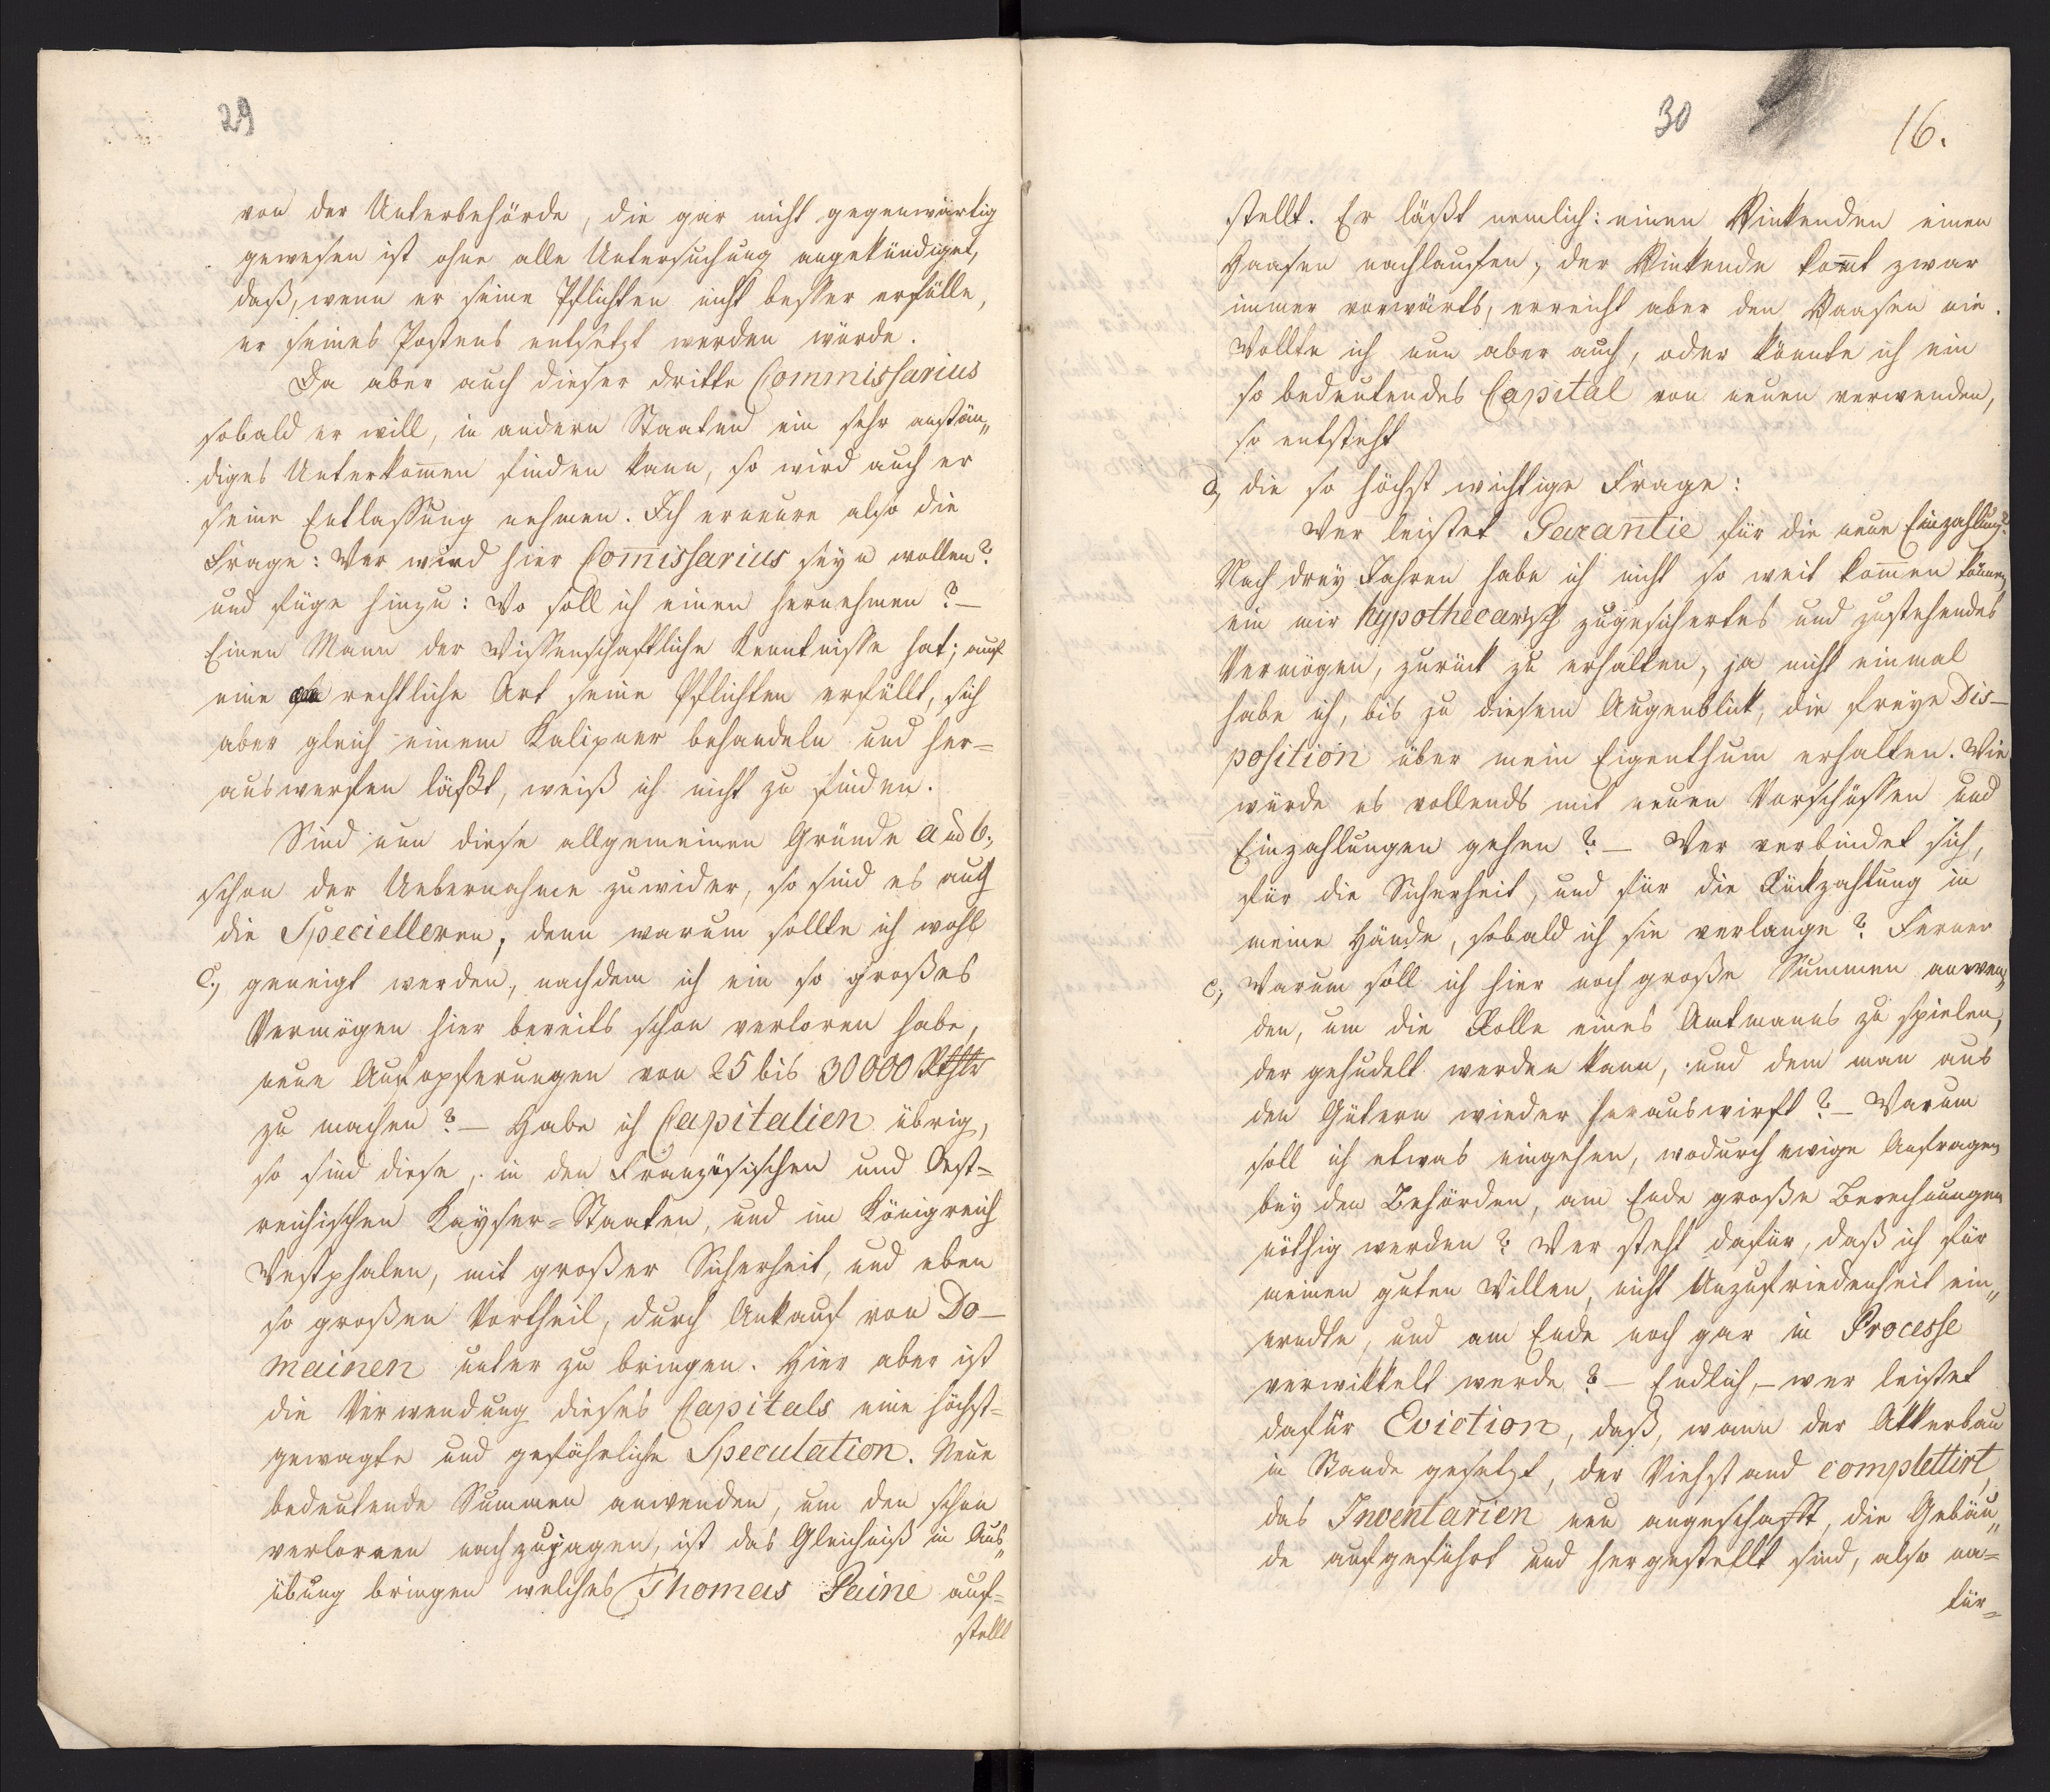 29
von der Unterbehörde, die gar nicht gegenwärtig
gewesen ist ohne alle Untersuchung angekündiget,
daß, wenn er seine Pflichten nicht besser erfülle,
er seines Postens entsetzt werden würde.
Da aber auch dieser dritte Commissarius
sobald er will, in andern Staaten ein sehr anstän„
diges Unterkom̅en finden kann, so wird auch er
seine Entlassung nehmen. Ich erneure also die
Frage: Wer wird hier Com̅issarius seyn wollen?
und füge hinzu: Wo soll ich einen hernehmen? –
Einen Mann der Wissenschaftliche Kenntnisse hat; auf
eine rechtliche Art seine Pflichten erfüllt, sich
aber gleich einem Kalipner behandeln und her=
auswerfen läßt, weiß ich nicht zu finden.
Sind nun diese allgemeinen Gründe a ud b.,
schon der Uebernahme zuwider, so sind es auch
die Speciellern; denn warum sollte ich wohl
c., geneigt werden, nachdem ich ein so großes
Vermögen hier bereits schon verloren habe,
neue Aufopferungen von 25 bis 30000 Rthlr
zu machen? – Habe ich Capitalien übrig,
so sind diese, in den Französischen und Oest=
reichischen Kayser=Staaten, und im Königreich
Westphalen, mit großer Sicherheit, und eben
so großen Vortheil, durch Ankauf von Do–
mainen unter zu bringen. Hier aber ist
die Verwendung dieses Capitals eine höchst=
gewagte und gefährliche Speculation. Neue
bedeutende Summen anwenden, um den schon
verlornen nachzujagen, ist das Gleichniß in Aus„
übung bringen welches Thomas Paine auf=
stellt
30
16.
stellt. Er läßt nemlich: einen Hinkenden einen
Haasen nachlaufen; der Hinkende kom̅t zwar
immer vorwärts, erreicht aber den Haasen nie.
Wollte ich nun aber auch, oder könnte ich ein
so bedeutendes Capital von neuen verwenden,
so entsteht
d, die so höchst wichtige Frage:
Wer leistet Garantie für die neue Einzahlung?
Nach drey Jahren habe ich nicht so weit kom̅en können
ein mir hypothecarisch zugesichertes und zustehendes
Vermögen, zurück zu erhalten, ja nicht einmal
habe ich, bis zu diesem Augenblick, die freye Dis–
position über mein Eigenthum erhalten. Wie
würde es vollends mit neuen Vorschüssen und
Einzahlungen gehen? – Wer verbindet sich,
für die Sicherheit, und für die Rückzahlung in
meine Hände, sobald ich sie verlange? Ferner
e., Warum soll ich hier noch große Summen anwen„
den, um die Rolle eines Amtmanns zu spielen,
der gehudelt werden kann, und dem man aus
den Gütern wieder herauswirft? – Warum
soll ich etwas eingehen, wodurch ewige Anfragen
bey den Behörden, am Ende große Berechnungen
nöthig werden? Wer steht dafür, daß ich für
meinen guten Willen, nicht Unzufriedenheit ein„
erndte, und am Ende noch gar in Processe
verwikkelt werde? – Endlich, – wer leistet
dafür Eviction, daß, wann der Akkerbau
in Stande gesetzt, der Viehstand complettirt,
das Inventarien neu angeschafft, die Gebäu„
de aufgeführt und hergestellt sind, also na=
tür=